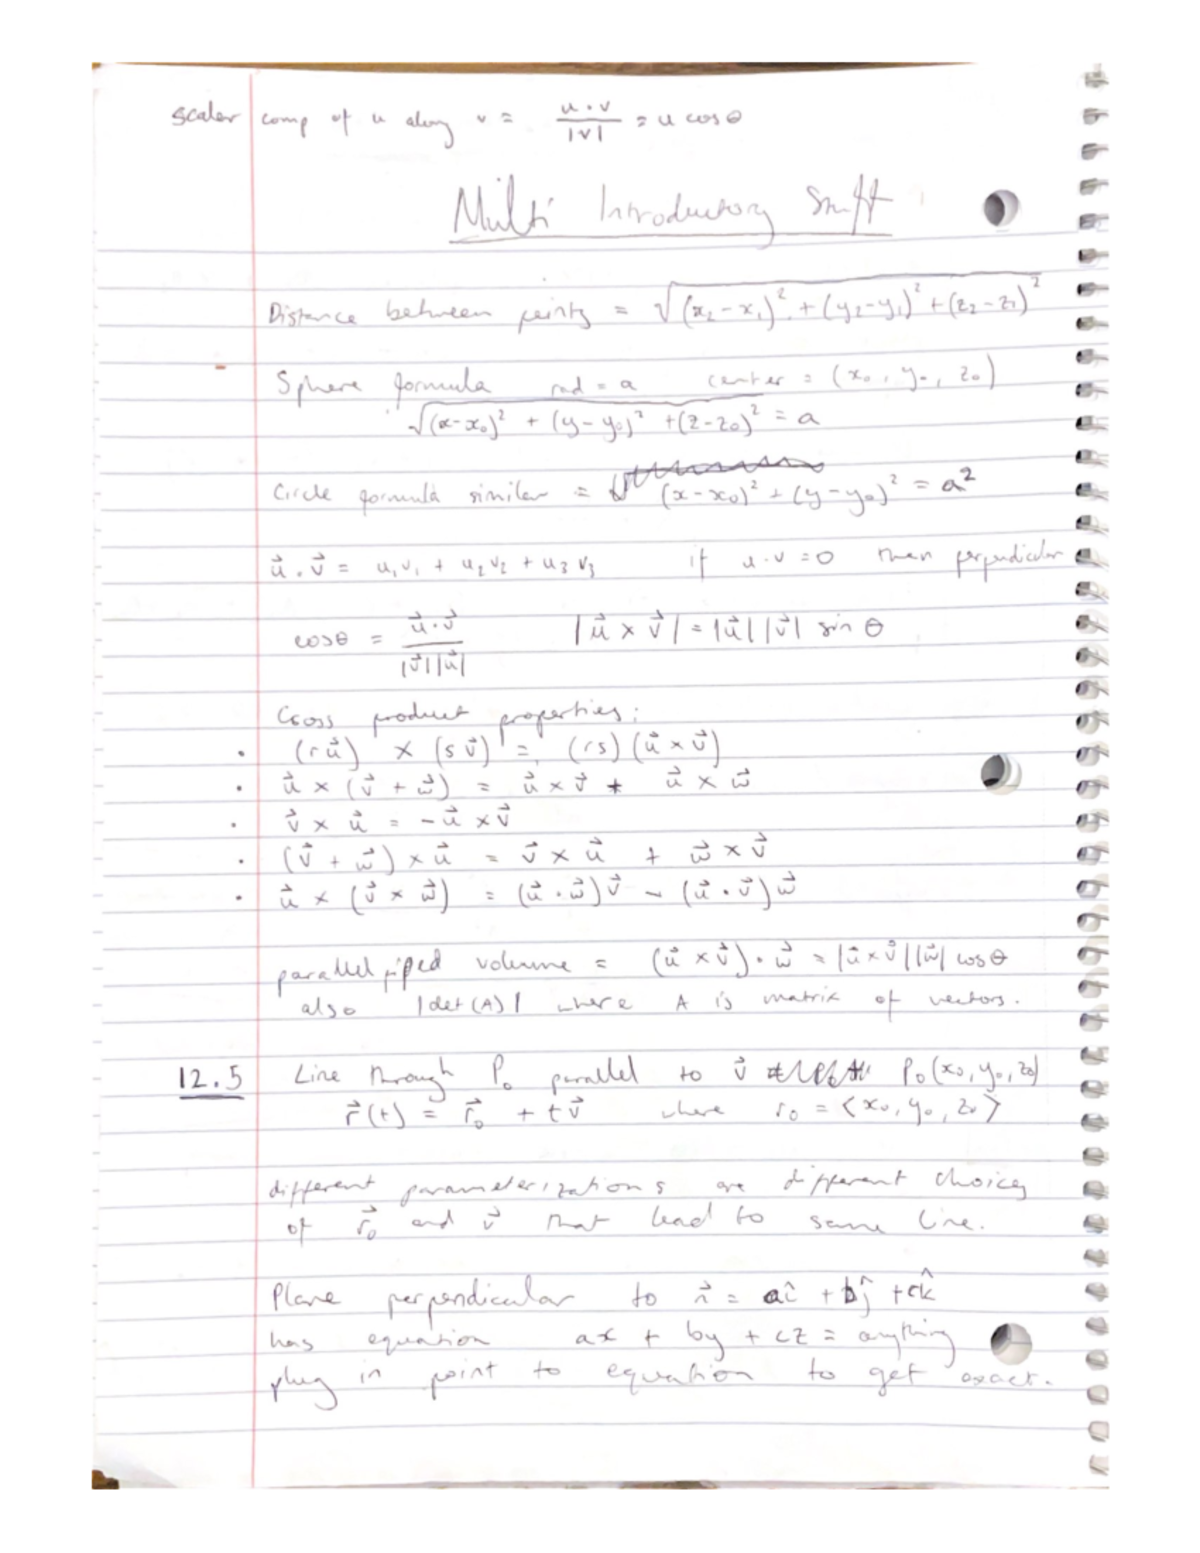 scalar comp of u along v = u · v / |v| = u cos θ
Multi Introductory Stuff
Distance between points = √((x₂-x₁)² + (y₂-y₁)² + (z₂-z₁)²)
Sphere formula rad = a center = (x₀, y₀, z₀)
√((x-x₀)² + (y-y₀)² + (z-z₀)²) = a
Circle formula similar = (x-x₀)² + (y-y₀)² = a²
u⃗ · v⃗ = u₁v₁ + u₂v₂ + u₃v₃ if u · v = 0 then perpendicular
cos θ = u⃗ · v⃗ / |v⃗||u⃗| |u⃗ × v⃗| = |u⃗||v⃗| sin θ
Cross product properties:
• (r u⃗) × (s v⃗) = (rs)(u⃗ × v⃗)
• u⃗ × (v⃗ + w⃗) = u⃗ × v⃗ + u⃗ × w⃗
• v⃗ × u⃗ = - u⃗ × v⃗
• (v⃗ + w⃗) × u⃗ = v⃗ × u⃗ + w⃗ × v⃗
• u⃗ × (v⃗ × w⃗) = (u⃗ · w⃗)v⃗ - (u⃗ · v⃗)w⃗
parallel piped volume = (u⃗ × v⃗) · w⃗ = |u⃗ × v⃗||w⃗| cos θ
also |det(A)| where A is matrix of vectors.
12.5 Line through P₀ parallel to v⃗ P₀(x₀, y₀, z₀)
r⃗(t) = r⃗₀ + t v⃗ where r₀ = ⟨x₀, y₀, z₀⟩
different parameterizations are different choices
of r⃗₀ and v⃗ that lead to same line.
Plane perpendicular to n⃗ = aî + bĵ + ck̂
has equation ax + by + cz = anything
plug in point to equation to get exact.